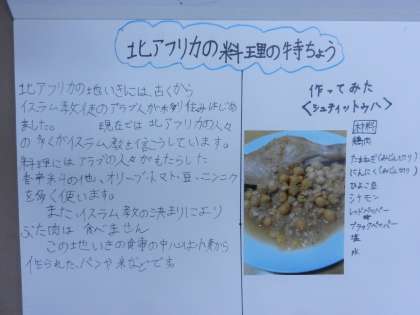 北アフリカの料理の特ちょう
北アフリカの地いきには、古くから
イスラム教徒のアラブ人が移り住みはじめ
ました。 現在では北アフリカの人々
の多くがイスラム教を信こうしています。
料理にはアラブの人々がもたらした
香辛料の他、オリーブ・トマト・豆・ニンニク
を多く使います。
また、イスラム教の決まりにより
ぶた肉は食べません
この地いきの食事の中心は小麦から
作られた、パンや米などです
作ってみた
<シュティットゥハ>
材料
鶏肉
たまねぎ(みじん切り)
にんにく(みじん切り)
ひよこ豆
シナモン
レッドペッパー
ブラックペッパー
塩
水